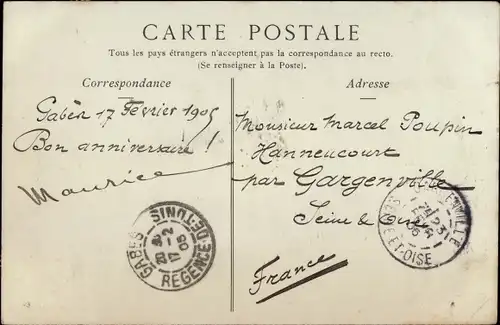 CARTE POSTALE
Tous les pays étrangers n'acceptent pas la correspondance au recto.
(Se renseigner à la Poste).
Correspondance
Gabès 17 Février 1905
Bon anniversaire !
Maurice
GABES
17 -2
05
REGENCE-DE-TUNIS
Adresse
Monsieur Marcel Poupin
Hanneucourt
par Gargenville
Seine & Oise
France
23
05
OISE